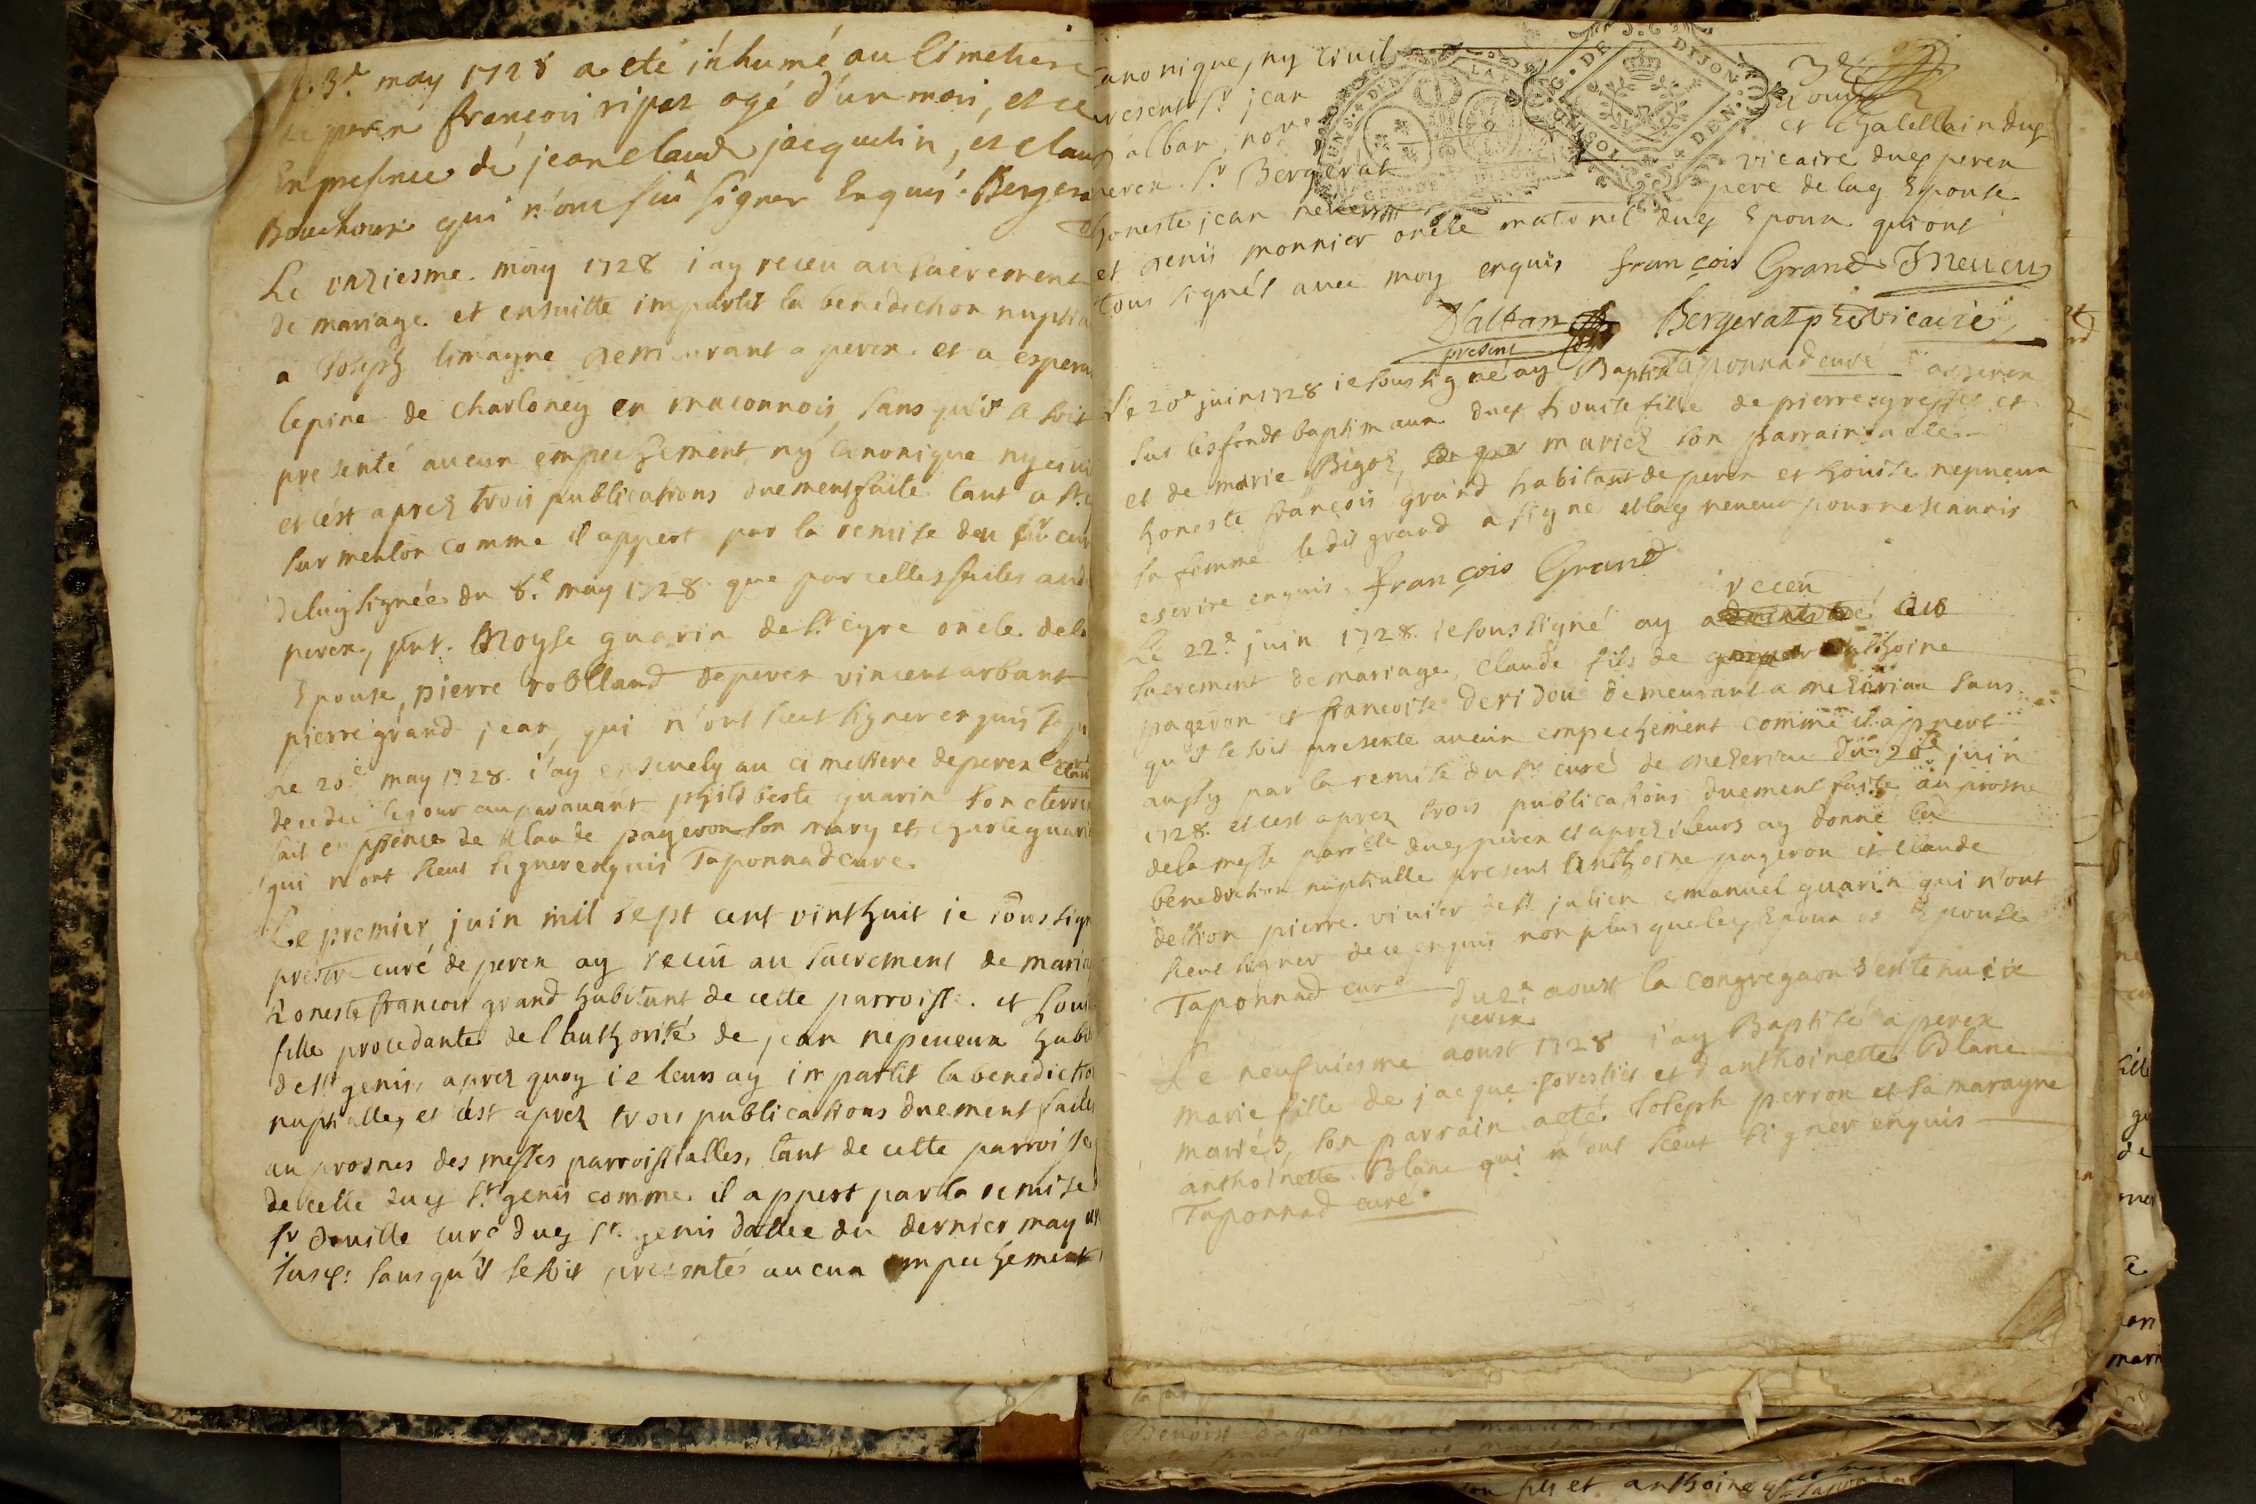 Le 3e may 1728 a eté inhumé au Cimetiere
de peren françois ripet agé d'un mois, et ce
En presence de jean claude jacquelin, et claud
Bouchoux qui n'ont sçu signer Enquis. Bergera
Le onziesme may 1728 i ay receu au sacrement
de mariage et ensuitte impartit la benediction nuptia
a Joseph limagne demeurant a peren et a espera
lepine de charloney en maconnois sans qu'il se soit
presenté aucun empeschement ny canonique ny civi
et c'est aprez trois publications duement faite tant a St
sur menton comme il appert par la remise du Sr cur
de luy signée du 8e may 1728 que par celles faites aud
peren, pnt. Moyse guarin de St cyre oncle de la
Epouse, pierre robelland de peren vincent arbant
pierre grand jean, qui n'ont sceut signer enquis Tap
Le 20e may 1728 i'ay ensevely au cimettiere de peren
decedee le jour auparavant philiberte guarin son
fait en psence de Claude pageron son mary et charle guari
qui n'ont sceut signer enquis Taponnad curé
Le premier juin mil sept cent vinthuit ie soussign
prestre curé de peren ay receu au sacrement de maria
honeste francois grand habitant de cette parroisse et Loui
fille procedante de l'authorité de jean nepeueux habi
de St genis, aprez quoy ie leurs ay impartit la benedictio
nuptialle, et c'est aprez trois publications duement faites
au prosnes des messes parroissialles, tant de cette parroisse
de celle dud St genis comme il appert par la remise
Sr Douille curé dud St genis dattée du dernier may
susd: sans qu'il se soit presentés aucun empechement
canonique, ny civil
present Sr jean
d'alban, no.re
et Chatellain dud
peren Sr Bergerat
vicaire dud peren
honeste jean neveux
pere de lad Epouse
et denis monnier oncle maternel dud Epoux qui ont
tous signés avec moy enquis françois Grand J neueux
Dalban
present
Bergerat ptre vicaire
Taponnad curé
Le 20e juin 1728 ie soussigné ay Baptisé a peren
sus les fonds baptimaux dud Louise fille de pierre
et de marie Bigot, mariez son parrain a été
honeste françois grand habitant de peren et Louise nepueux
sa femme ledit grand a signé et lad neveux pour ne scavoir
escrire enquis. françois Grand
Le 22e juin 1728 ie soussigné ay receu au
sacrement de mariage, Claude fils de anthoine
pageron et francoise deridou demeurant a mezeriau sans
qu'il se soit presente aucun empechement comme il appert
aussy par la remise du Sr curé de mezeriau du 20e juin
1728. et c'est aprez trois publications duement faite au prosne
de la messe parrelle dud peren et aprez ie leurs ay donné la
benediction nuptialle present anthoine pageron et claude
pierre vivier de St julien emanuel guarin qui n'ont
sceut signer de ce enquis non plus que led Epoux et Epouse
Taponnad curé
du 2e aoust la congregaon s'est tenu ice
peren
Le neufviesme aoust 1728 i'ay Baptisé a peren
marie fille de jacque forestier et d'anthoinette Blanc
mariés, son parrain a eté Joseph perron et sa marayne
anthoinette Blanc qui n'ont sceut signer enquis
Taponnad curé